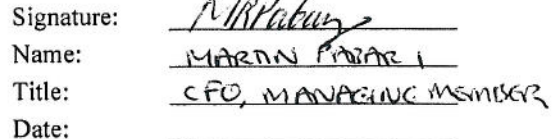 Signature:
Name: MARTIN
Title: CFO, MANAGING MEMBER
Date: